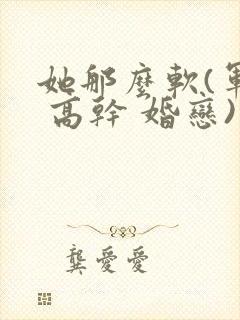 她那麼軟(軍
高幹 婚戀)
龔愛愛